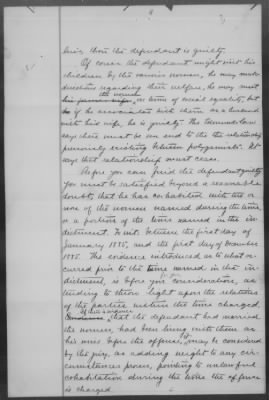 tries them the defendant is guilty.
Of course the defendant might visit his
children by the various women, he may make
directions regarding their welfare, he may meet
the women
his former wife, on terms of social equality, but
if he associates with them as a husband
with his wife, he is guilty. The Edmunds law
says there must be an end to the relationship
previously existing between polygamists. It
says that relationship must cease.
Before you can find the defendant guilty
you must be satisfied beyond a reasonable
doubt, that he has cohabited with two or
more of the women named during the time,
or a portion of the time named in the in-
dictment. To wit: between the first day of
January 1885, and the first day of December
1885. The evidence introduced as to what oc-
curred prior to the time named in the in-
for your
dictment, is before you consideration, as
tending to throw light upon the relations
of the parties within the time charged.
If there is evidence
that the defendant had married
the women, had been living with them as
his wives before the offense, it may be considered
by the jury, as adding weight to any cir-
cumstances proven, pointing to unlawful
cohabitation during the time the offense
is charged.